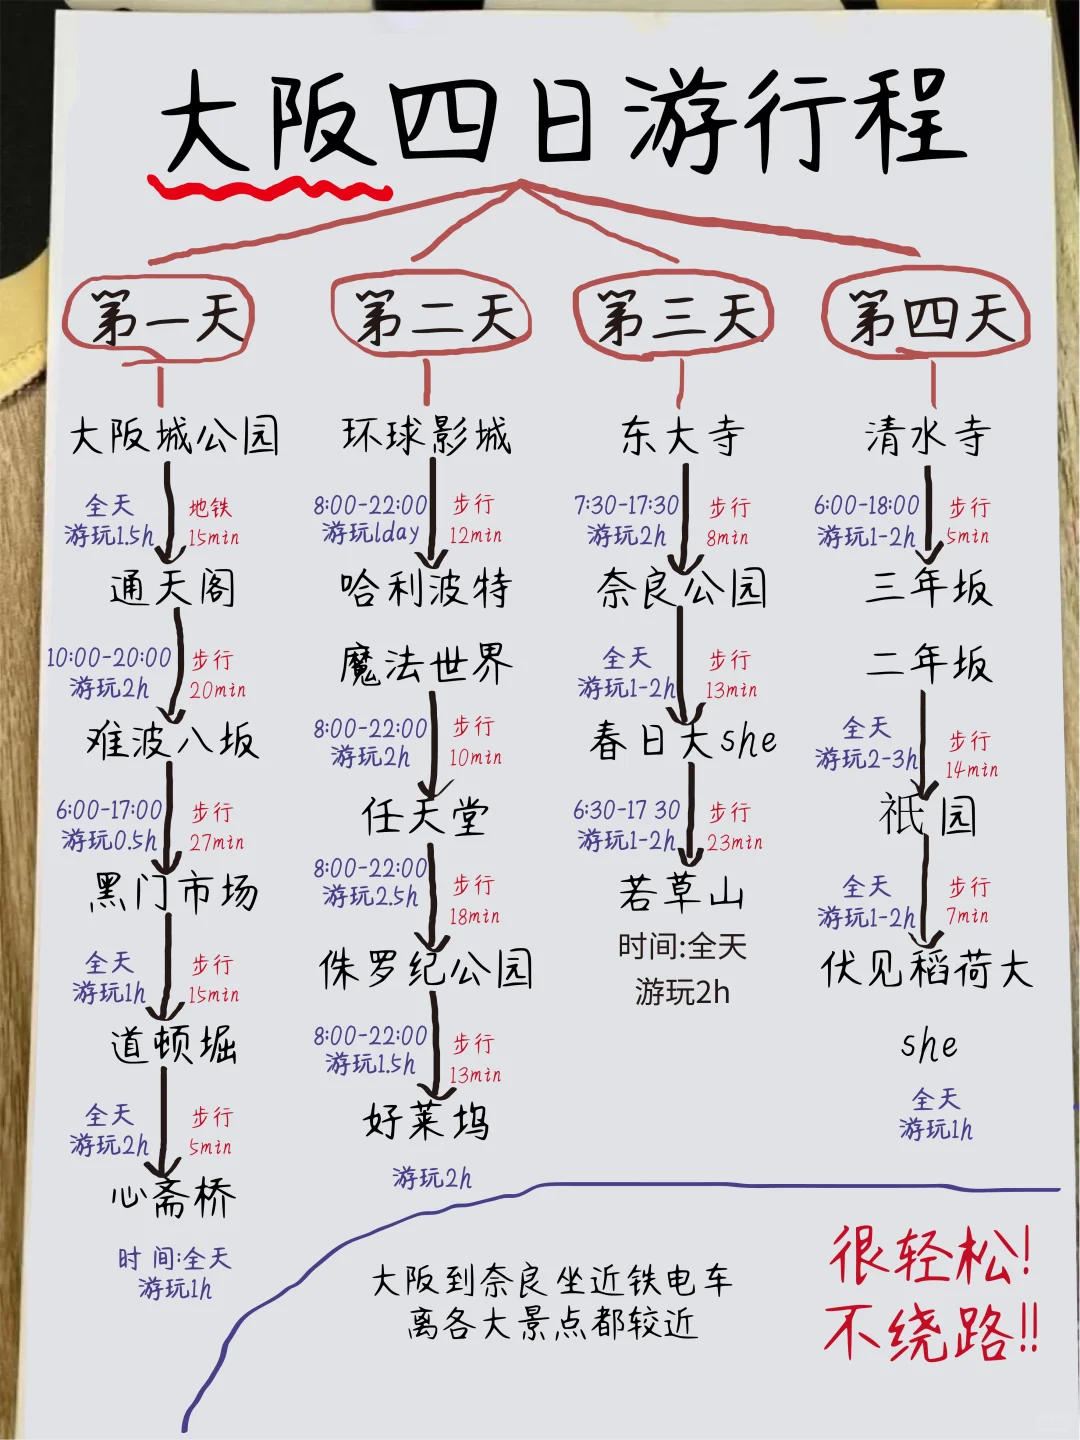 大阪四日游行程
第一天
大阪城公园
全天
游玩1.5h
地铁
15min
通天阁
10:00-20:00
游玩2h
步行
20min
难波八坂
6:00-17:00
游玩0.5h
步行
27min
黑门市场
全天
游玩1h
步行
15min
道顿堀
全天
游玩2h
步行
5min
心斋桥
时 间:全天
游玩1h
第二天
环球影城
8:00-22:00
游玩1day
步行
12min
哈利波特
魔法世界
8:00-22:00
游玩2h
步行
10min
任天堂
8:00-22:00
游玩2.5h
步行
18min
侏罗纪公园
8:00-22:00
游玩1.5h
步行
13min
好莱坞
游玩2h
第三天
东大寺
7:30-17:30
游玩2h
步行
8min
奈良公园
全天
游玩1-2h
步行
13min
春日大she
6:30-17 30
游玩1-2h
步行
23min
若草山
时间:全天
游玩2h
第四天
清水寺
6:00-18:00
游玩1-2h
步行
5min
三年坂
二年坂
全天
游玩2-3h
步行
14min
祇园
全天
游玩1-2h
步行
7min
伏见稻荷大
she
全天
游玩1h
大阪到奈良坐近铁电车
离各大景点都较近
很轻松!
不绕路!!